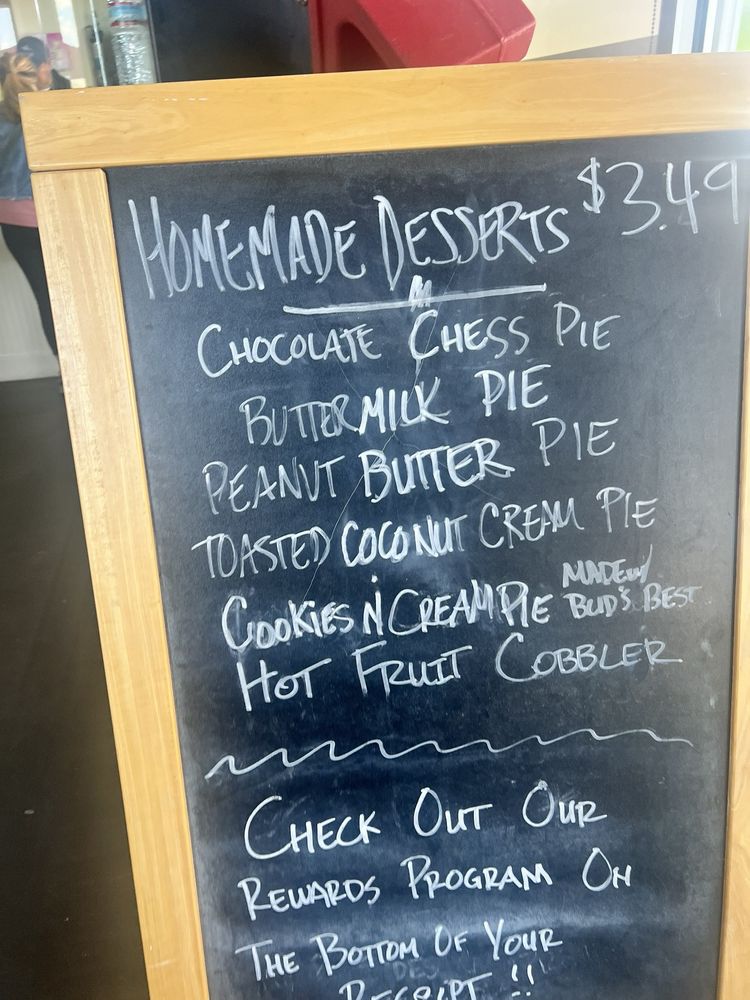 HOMEMADE DESSERTS $3.49
CHOCOLATE CHESS PIE
BUTTERMILK PIE
PEANUT BUTTER PIE
TOASTED COCONUT CREAM PIE
COOKIES N CREAM PIE MADE W/ BUD'S BEST
HOT FRUIT COBBLER
CHECK OUT OUR
REWARDS PROGRAM ON
THE BOTTOM OF YOUR
RECEIPT !!